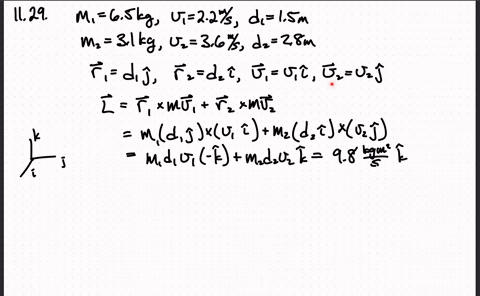 11.29. m₁=6.5kg, v₁=2.2 m/s, d₁=1.5m
m₂=3.1kg, v₂=3.6 m/s, d₂=2.8m
r⃗₁=d₁ĵ, r⃗₂=d₂î, v⃗₁=v₁î, v⃗₂=v₂ĵ
L⃗ = r⃗₁×mv⃗₁+r⃗₂×mv⃗₂
= m₁(d₁ĵ)×(v₁î)+m₂(d₂î)×(v₂ĵ)
= m₁d₁v₁(-k̂)+m₂d₂v₂k̂ = 9.8 kgm²/s k̂
k
j
i